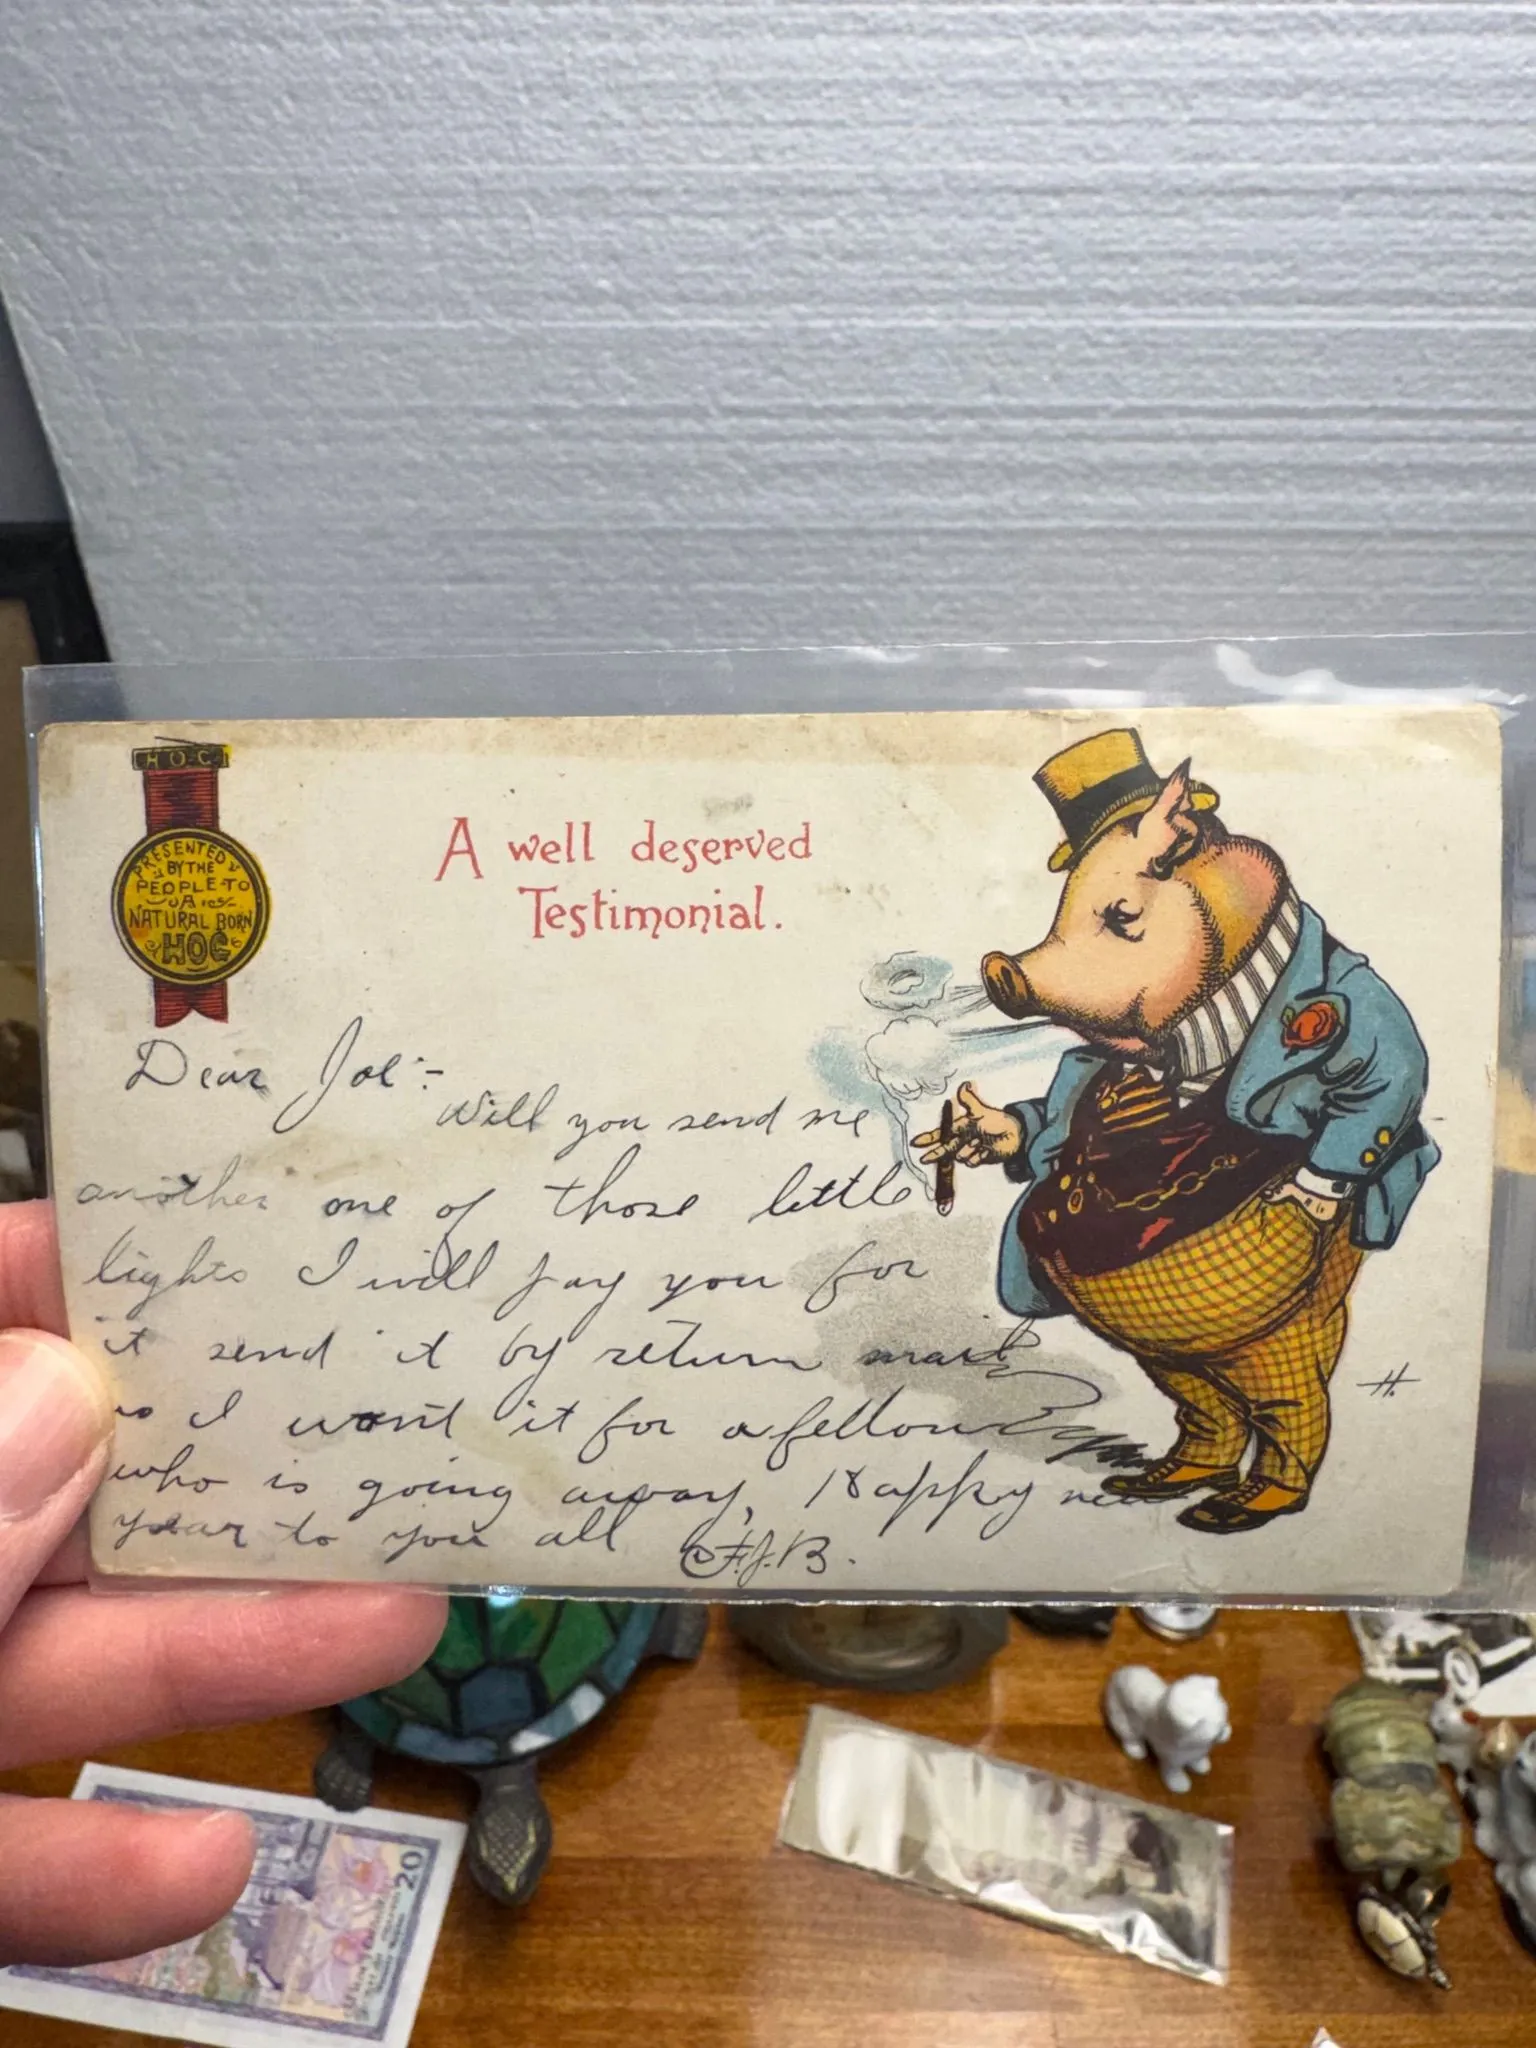 HOG
PRESENTED
BY THE
PEOPLE TO
A
NATURAL BORN
HOG
A well deserved
Testimonial.
Dear Joe:-
Will you send me
another one of those little
lights I will pay you for
it send it by return mail
as I want it for a fellow
who is going away, Happy new
year to you all F.J.B.
H.
20